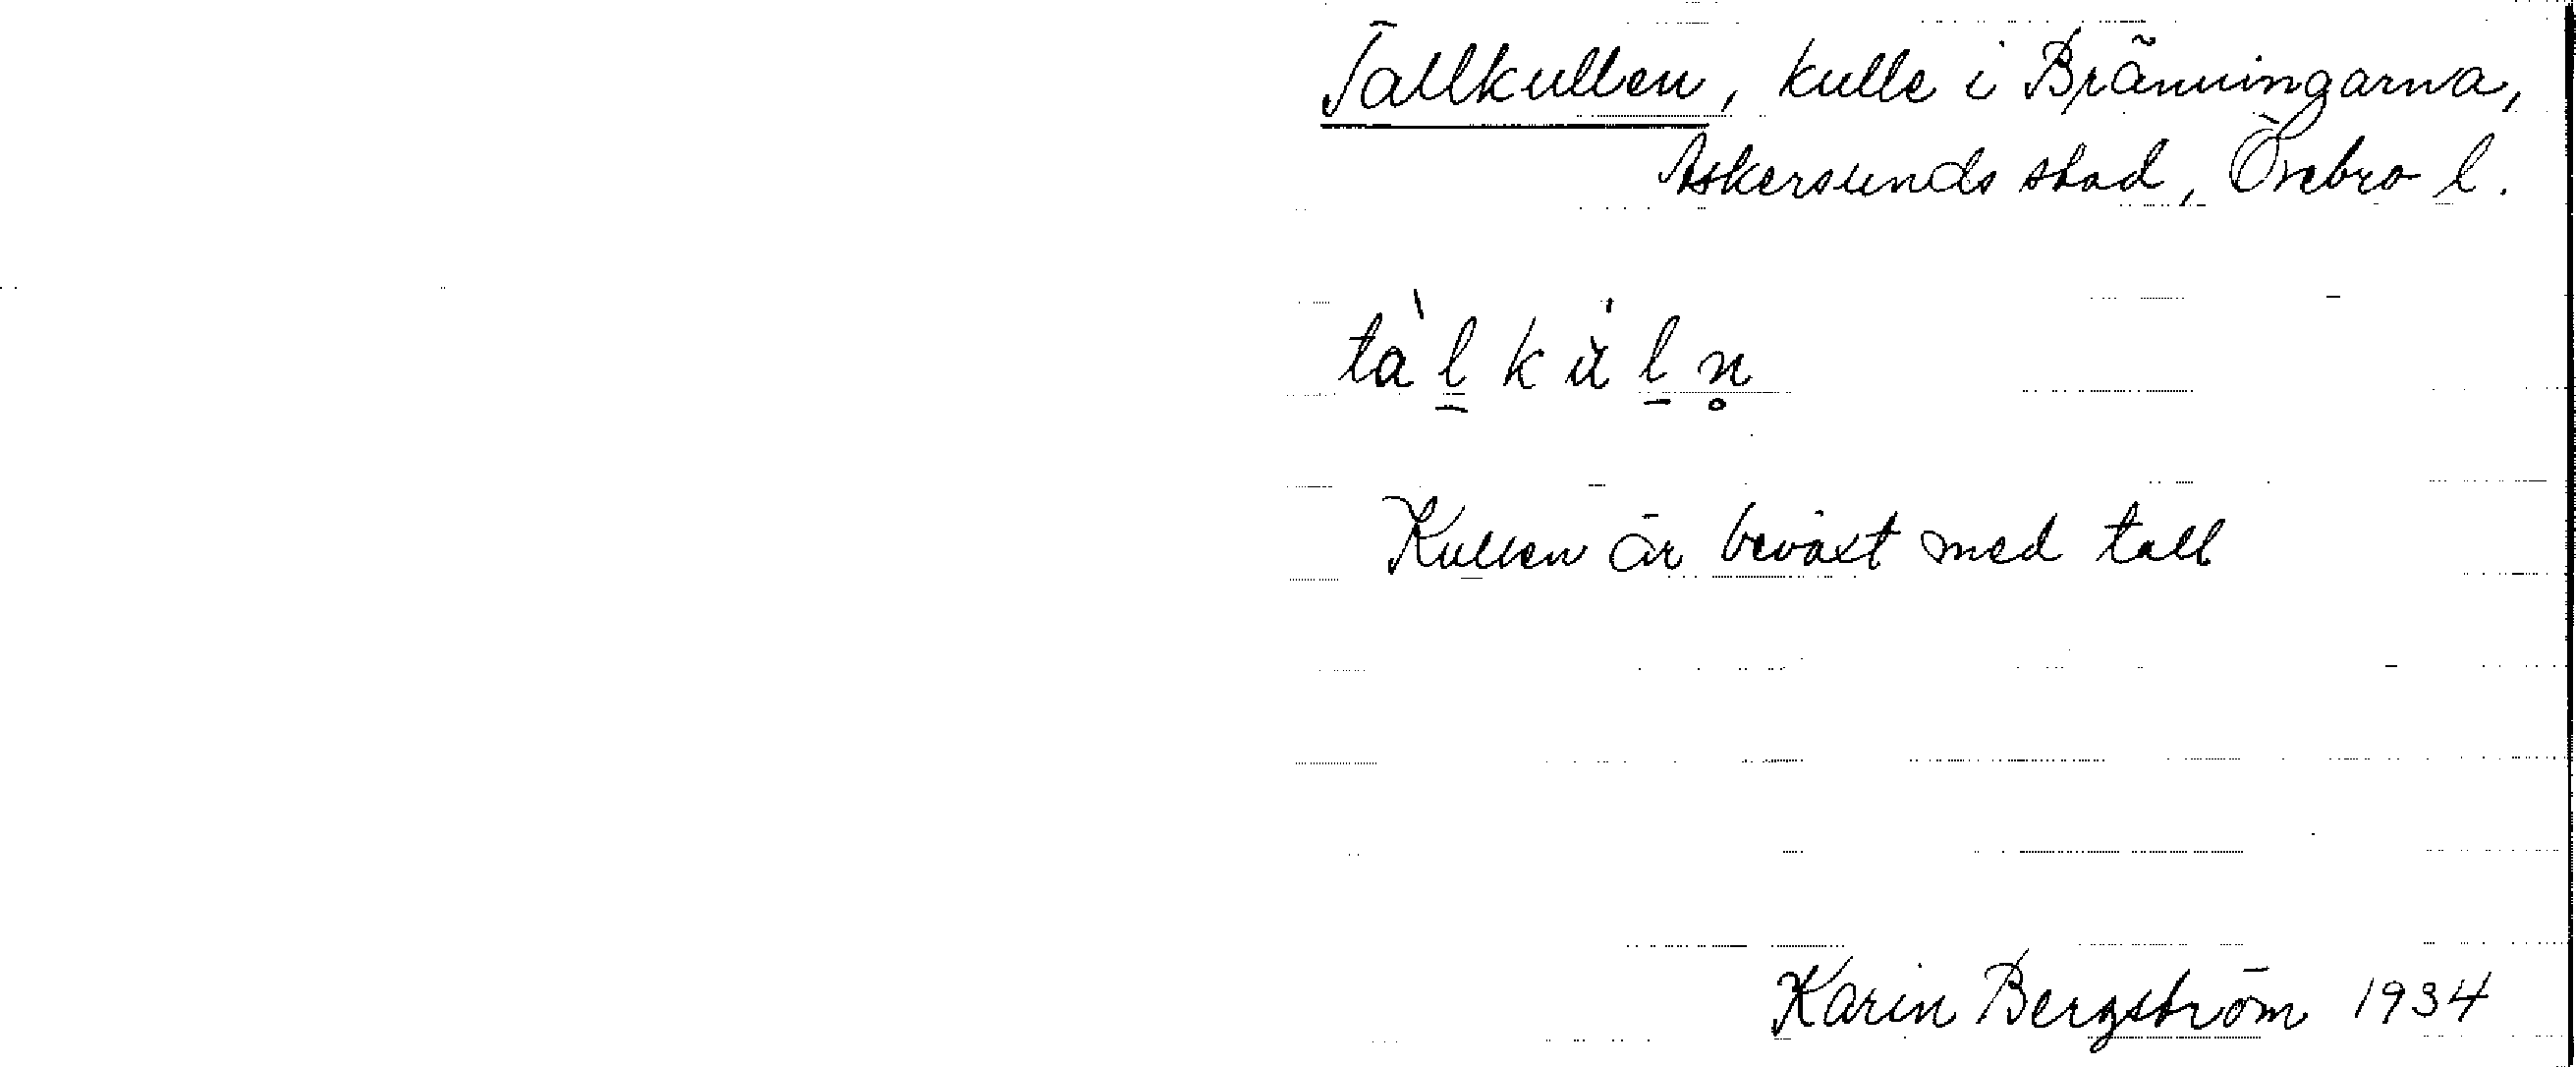 Tallkullen, kulle i Bränningarna,
Askersunds stad, Örebro l.
tàl̠ k ù l̠ n̥
Kullen är beväxt med tall
Karin Bergström 1934